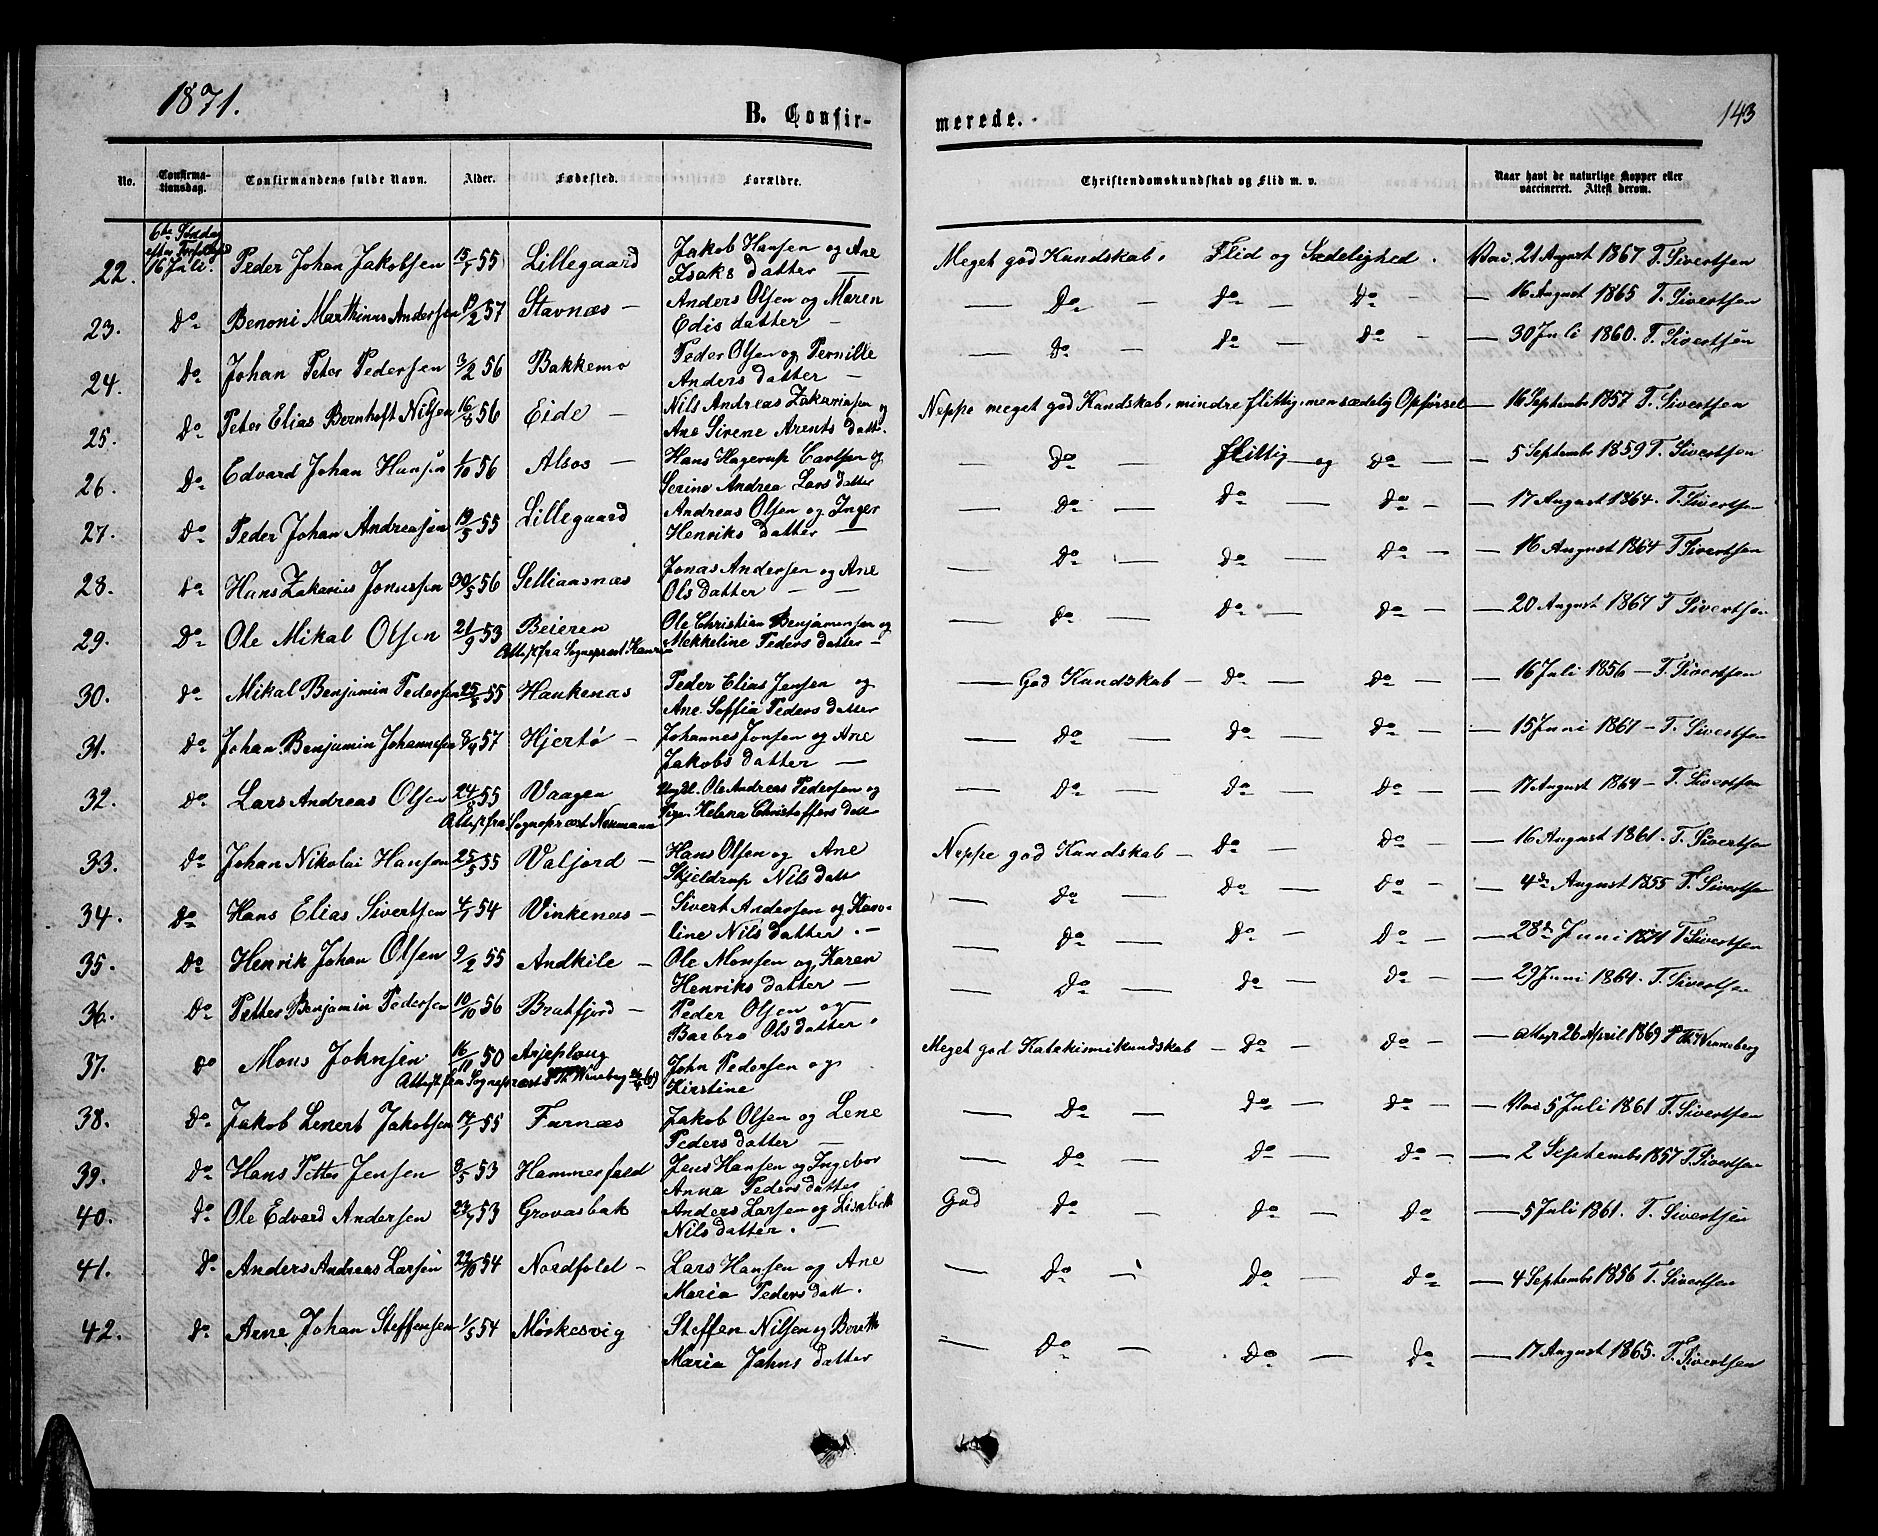 1871.
B. Confir-
merede.
143
No.
Confirma-
tionsdag.
Confirmandens fulde Navn.
Alder.
Fødested.
Forældre.
Christendomskundskab og Flid m. v.
Naar havt de naturlige Kopper eller
vaccineret. Attest derom.
6te Søndag
efter Trefoldighed
22. 16 Juli. Peder Johan Jakobsen 15/1 55 Lillegaard Jakob Hansen og Ane
Isaks datter —
Meget god Kundskab. Flid og Sædelighed. Vac. 21 August 1867 T. Sivertsen
23. Do Benoni Marthinus Andersen 19/2 57 Stavnæs — Anders Olsen og Maren
Edis datter —
— Do — Do — Do — — 16 August 1865 T. Sivertsen
24. Do Johan Peter Pedersen 3/2 56 Bakkemo Peder Olsen og Pernille
Anders datter —
— Do — Do — Do — — 30 Juli 1860. T. Sivertsen
25. Do Peter Elias Bernhoft Nilsen 16/8 56 Eide — Nils Andreas Zakariasen og
Ane Sirene Arents datt.
Neppe meget god Kundskab, mindre flittig, men sædelig Opførsel — 16 September 1857 T. Sivertsen
26. Do Edvard Johan Hansen 1/10 56 Alsos — Hans Hagerup Carlsen og
Serine Andrea Lars datter
— Do — flittig og Do — — 5 September 1859 T. Sivertsen
27. Do Peder Johan Andreasen 19/5 55 Lillegaard Andreas Olsen og Inger
Henriks datter —
— Do — Do — Do — — 17 August 1864. T. Sivertsen
28. Do Hans Zakarias Jonassen 30/5 56 Selliaasnæs Jonas Andersen og Ane
Ols datter — —
— Do — Do — Do — — 16 August 1864 T Sivertsen
29. Do Ole Mikal Olsen 21/9 53 Beieren Ole Christian Benjaminsen og
Attest fra Sognepræst Hansen Mekkeline Peders datter —
— Do — Do — Do — — 20 August 1861 T Sivertsen
30. Do Mikal Benjamin Pedersen 25/8 55 Haukenæs Peder Elias Jensen og
Ane Soffia Peders datter
— God Kundskab — Do — Do — — 16 Juli 1856 — T. Sivertsen
31. Do Johan Benjamin Johannesen 8/4 57 Hjertø — Johannes Jonsen og Ane
Jakobs datter —
— Do — Do — Do — — 15 Juni 1861 — T. Sivertsen
32. Do Lars Andreas Olsen 24/8 55 Vaagen Ungkl. Ole Andreas Pedersen og
Attest fra Sognepræst Normann Pige Helena Christoffers datt
— Do — Do — Do — — 17 August 1864 — T. Sivertsen
33. Do Johan Nikolai Hansen 25/5 55 Valjord — Hans Olsen og Ane
Skjeldrup Nils datt
Neppe god Kundskab — Do — Do — — 16 August 1861. T. Sivertsen
34. Do Hans Elias Sivertsen 4/1 54 Vinkenæs — Sivert Andersen og Karo-
line Nils datter. —
— Do — Do — Do — — 4de August 1855 T. Sivertsen
35. Do Henrik Johan Olsen 9/2 55 Andkile — Ole Monsen og Karen
Henriks datter —
— Do — Do — Do — — 28de Juni 1871 T Sivertsen
36. Do Petter Benjamin Pedersen 10/10 56 Bratfjord — Peder Olsen og
Barbro Ols datter.
— Do — Do — Do — — 29 Juni 1864. T. Sivertsen
37. Do Mons Johnsen 16/11 50 Arjeploug John Pedersen og
Attest fra Sognepræst P Th Wineberg Kirstine
Meget god Katekismikundskab — Do — Do — — Attest 26 April 1869 P Th Wineberg
38. Do Jakob Lenert Jakobsen 14/1 55 Furnæs Jakob Olsen og Lene
Peders datter —
— Do — Do — Do — Vac 5 Juli 1861 T. Sivertsen
39. Do Hans Petter Jensen 9/5 53 Hammerfald Jens Hansen og Ingebor
Anna Peders datter
— Do — Do — Do — — 2 September 1857 T. Sivertsen
40. Do Ole Edvard Andersen 23/7 53 Grovasbak Anders Larsen og Lisabeth
Nils datter. —
God Do — Do — Do — 5 Juli 1861. T. Sivertsen
41. Do Anders Andreas Larsen 22/10 54 Nordfold — Lars Hansen og Ane
Maria Peders datt.
— Do — Do — Do — 4 September 1856 T. Sivertsen
42. Do Arne Johan Steffensen 1/5 54 Mørkesvig Steffen Nilsen og Bereth
Maria Jahns datter
— Do — Do — Do — 17 August 1865. T. Sivertsen